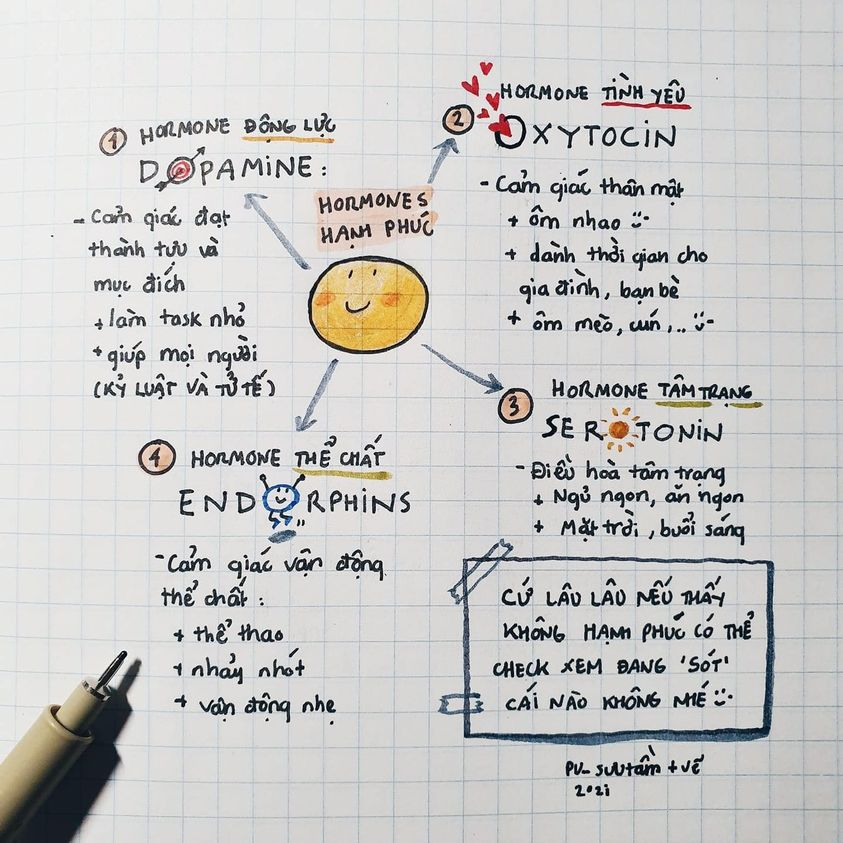 HORMONES
HẠNH PHÚC
1 HORMONE ĐỘNG LỰC
DOPAMINE:
- Cảm giác đạt
thành tựu và
mục đích
+ làm task nhỏ
+ giúp mọi người
(KỶ LUẬT VÀ TỬ TẾ)
2 HORMONE TÌNH YÊU
OXYTOCIN
- Cảm giác thân mật
+ ôm nhao
+ dành thời gian cho
gia đình, bạn bè
+ ôm mèo, cún,..
3 HORMONE TÂM TRẠNG
SEROTONIN
- Điều hoà tâm trạng
+ Ngủ ngon, ăn ngon
+ Mặt trời, buổi sáng
4 HORMONE THỂ CHẤT
ENDORPHINS
- Cảm giác vận động
thể chất:
+ thể thao
+ nhảy nhót
+ vận động nhẹ
CỨ LÂU LÂU NẾU THẤY
KHÔNG HẠNH PHÚC CÓ THỂ
CHECK XEM ĐANG 'SÓT'
CÁI NÀO KHÔNG NHÉ
PV_ sưu tầm + vẽ
2021